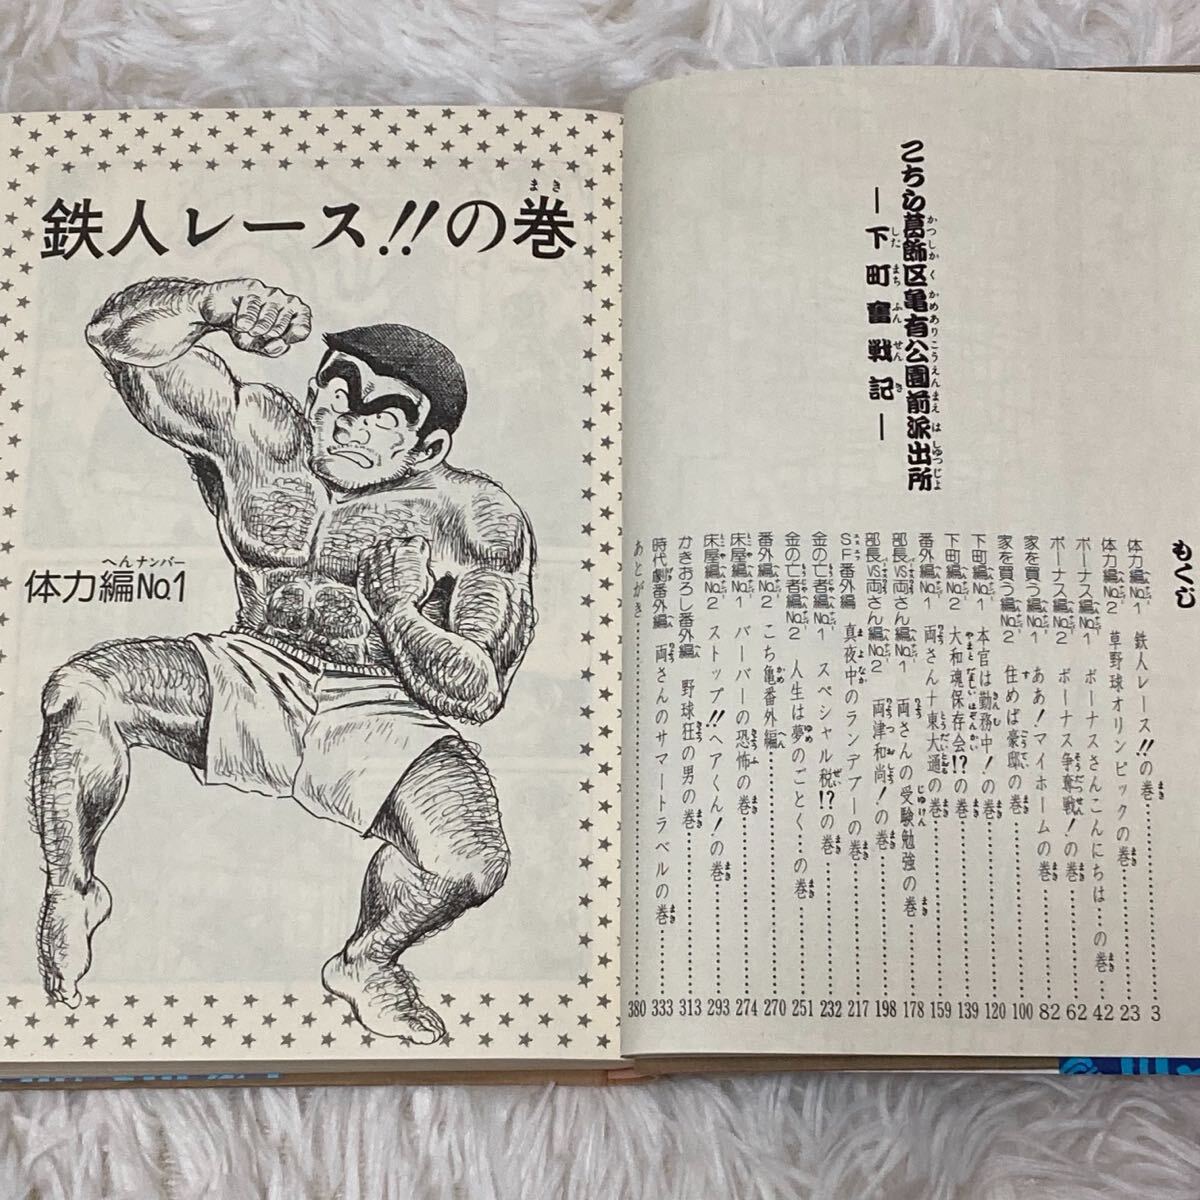 こちら葛飾区亀有公園前派出所
―下町奮戦記―
もくじ
体力編No.1 鉄人レース!!の巻……3
体力編No.2 草野球オリンピックの巻……23
ボーナス編No.1 ボーナスさんこんにちは…の巻……42
ボーナス編No.2 ボーナス争奪戦!の巻……62
家を買う編No.1 ああ!マイホームの巻……82
家を買う編No.2 住めば豪邸の巻……100
下町編No.1 本官は勤務中!の巻……120
下町編No.2 大和魂保存会!?の巻……139
番外編No.1 両さん+東大通の巻……159
部長VS両さん編No.1 両さんの受験勉強の巻……178
部長VS両さん編No.2 両津和尚!の巻……198
SF番外編 真夜中のランデブーの巻……217
金の亡者編No.1 スペシャル税!?の巻……232
金の亡者編No.2 人生は夢のごとく…の巻……251
番外編No.2 こち亀番外編……270
床屋編No.1 バーバーの恐怖の巻……274
床屋編No.2 ストップ!!ヘアくん!の巻……293
かきおろし番外編 野球狂の男の巻……313
時代劇番外編 両さんのサマートラベルの巻……333
あとがき……380
まき
鉄人レース!!の巻
へんナンバー
体力編No.1